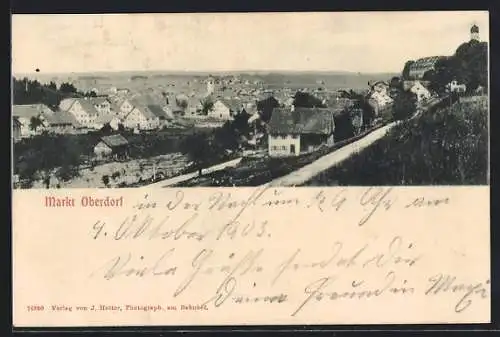 Markt Oberdorf
in der Nacht um ½9 Uhr am
4. Oktober 1903.
Viele Grüße sendet Dir
Deine Freundin Maxi
Verlag von J. Heiter, Photograph, am Bahnhof.